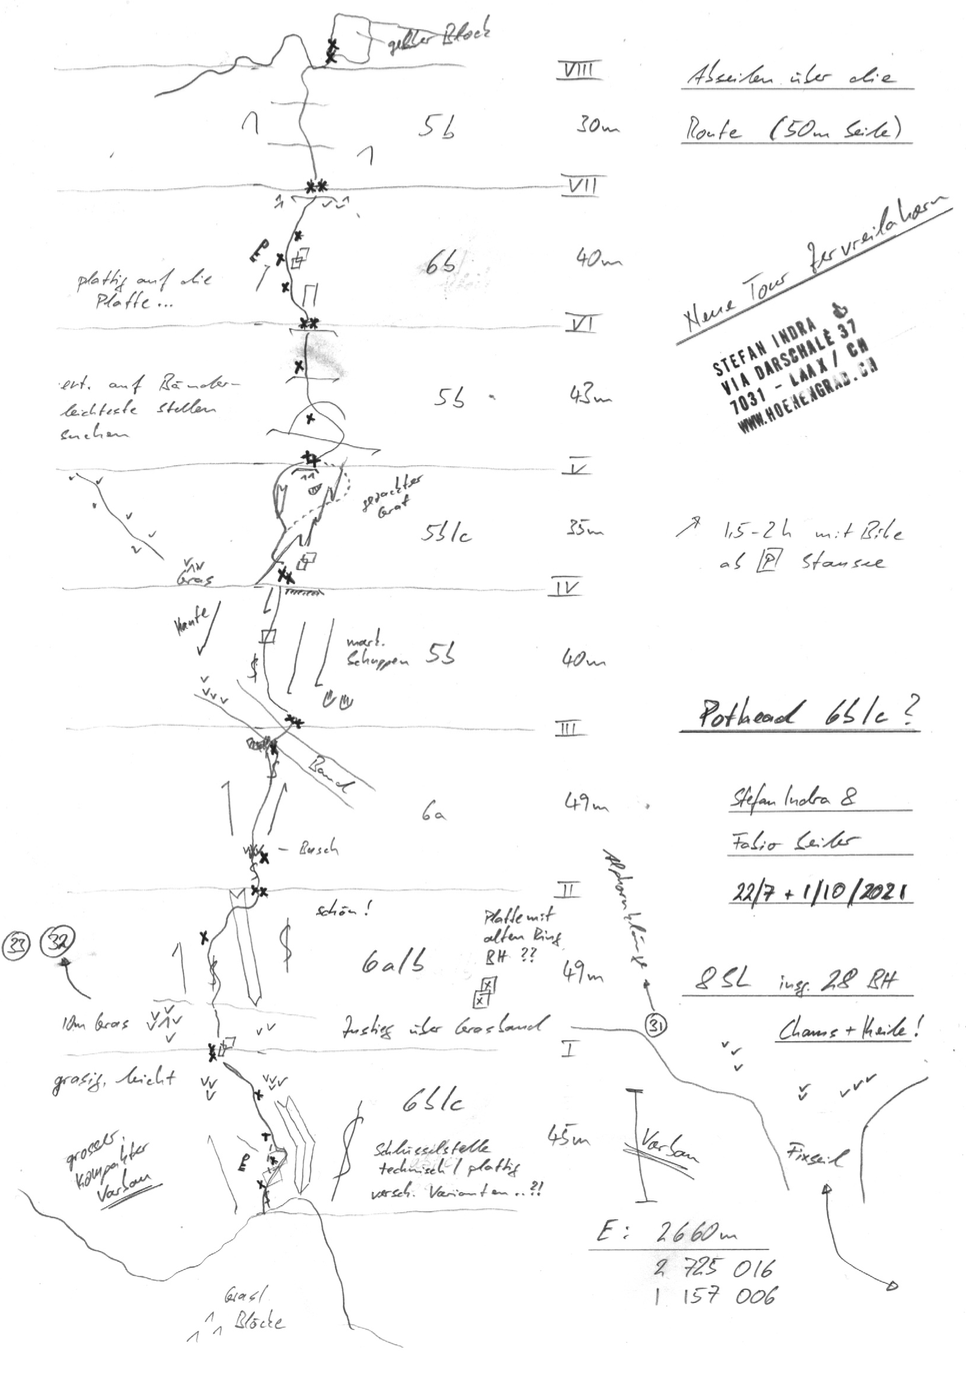 gelber Block
VIII
Abseilen über die
5b
30m
Route (50m Seile)
VII
6b
40m
plattig auf die
Platte...
VI
Neue Tour Zervreilahorn
STEFAN INDRA
VIA DARSCHALÈ 37
7031 - LAAX / CH
WWW.HOEHENGRAD.CH
evt. auf Bänder-
leichteste Stellen
suchen
5b
43m
V
gezackter
Grat
5b/c
35m
1,5-2h mit Bike
ab P Stausee
Gras
IV
Kante
mark.
Schuppen
5b
40m
III
Pothead 6b/c?
Band
6a
49m
Stefan Indra &
Fabio Seiler
22/7 + 1/10/2021
Busch
II
schön!
33
32
6a/b
Platte mit
alten Ring
BH ??
49m
Alphornklänge
8SL insg. 28 BH
10m Gras
Zustieg über Grasband
31
Chams + Keile!
I
grasig, leicht
6b/c
45m
grosser,
kompakter
Vorbau
Schlüsselstelle
technisch / plattig
versch. Varianten..?!
Vorbau
Fixseil
E: 2660m
2 725 016
1 157 006
Gras/
Blöcke